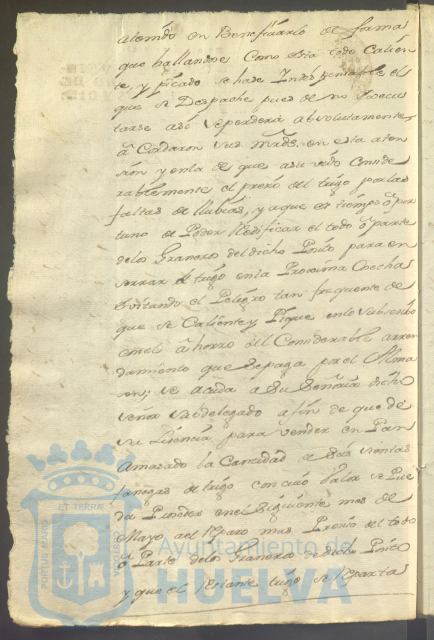 atento en Beneficiarlo de forma
que hallandose como esta todo calien
te, y picado se hase Indispensable el
que se Despache pues de no Execu
tarse asi se perdera absolutamente,
acordaron sus mrds. en esta aten
sion y en la de que a su vido conside
rablemente el presio del trigo por las
faltas de llubias, y a que es tiempo opor
tuno de Poder Redificar el todo ó parte
de los Graneros del dicho Posito para en
serrar el trigo en la Proxima Cosecha
Evitando el Peligro tan frequente de
que se Caliente y Pique en lo subsesibo
el ahorro del Considerable arren
damiento que se paga por el Alma
sen; se acuda a Su Señoria dicho
señor subdelegado a fin de que dé
su Lisencia para vender en Pan
Amasado la Cantidad de
fanegas de trigo con cuio Valor se Pue
da Proseder en el Siguiente mes de
Mayo al Reparo mas Presiso del todo
ó Parte de los Graneros de dicho Posito
y que el Restante trigo se Reparta
PORTUS MARIS
ET TERRÆ
CUSTODIA
Ayuntamiento de
HUELVA